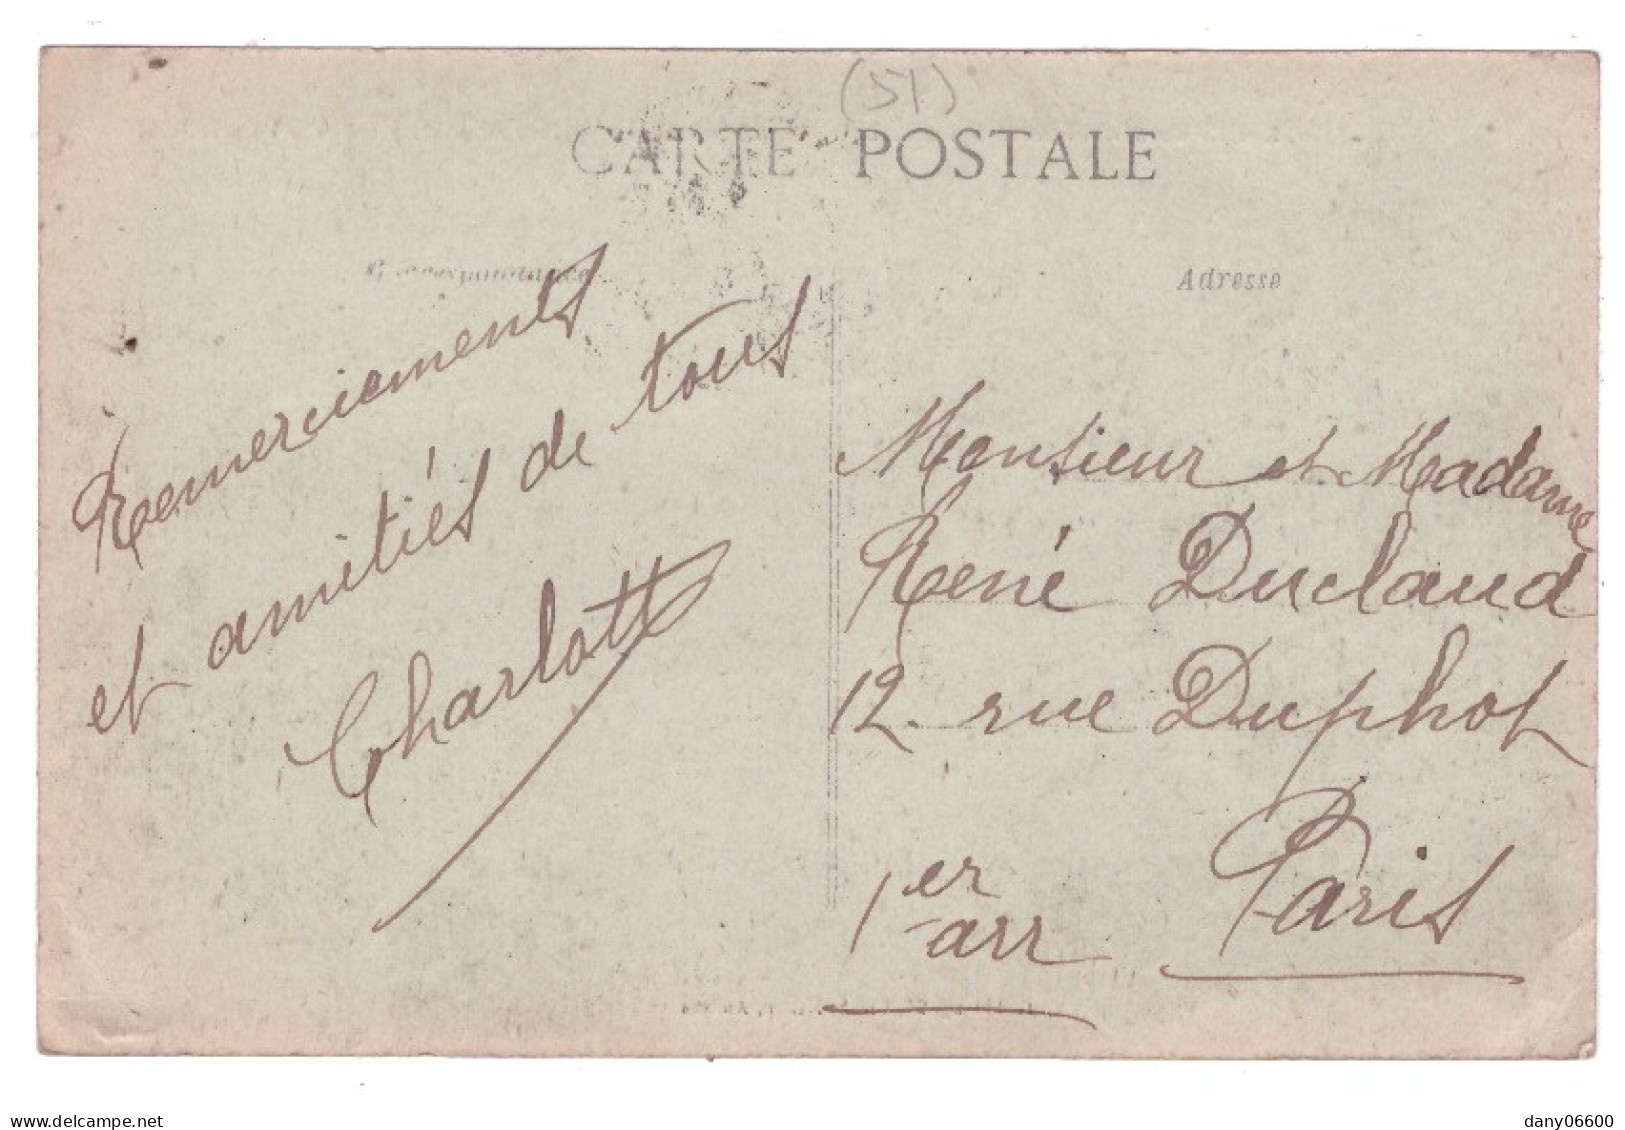 (51)
CARTE POSTALE
Correspondance
Adresse
Remerciements
et amitiés de tous
Charlotte
Monsieur et Madame
René Duclaud
12. rue Duphot
1er arr
Paris
delcampe.net
dany06600